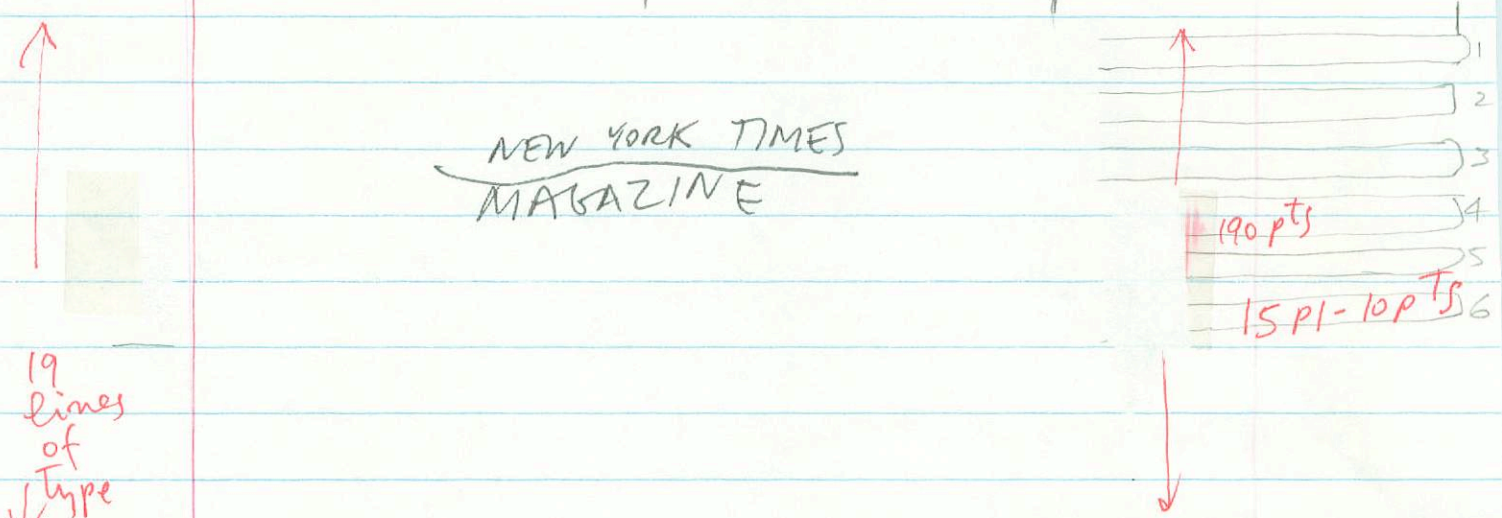 NEW YORK TIMES
MAGAZINE
1
2
3
4
5
6
190 pts
15 PI - 10 PTS
19
lines
of
Type